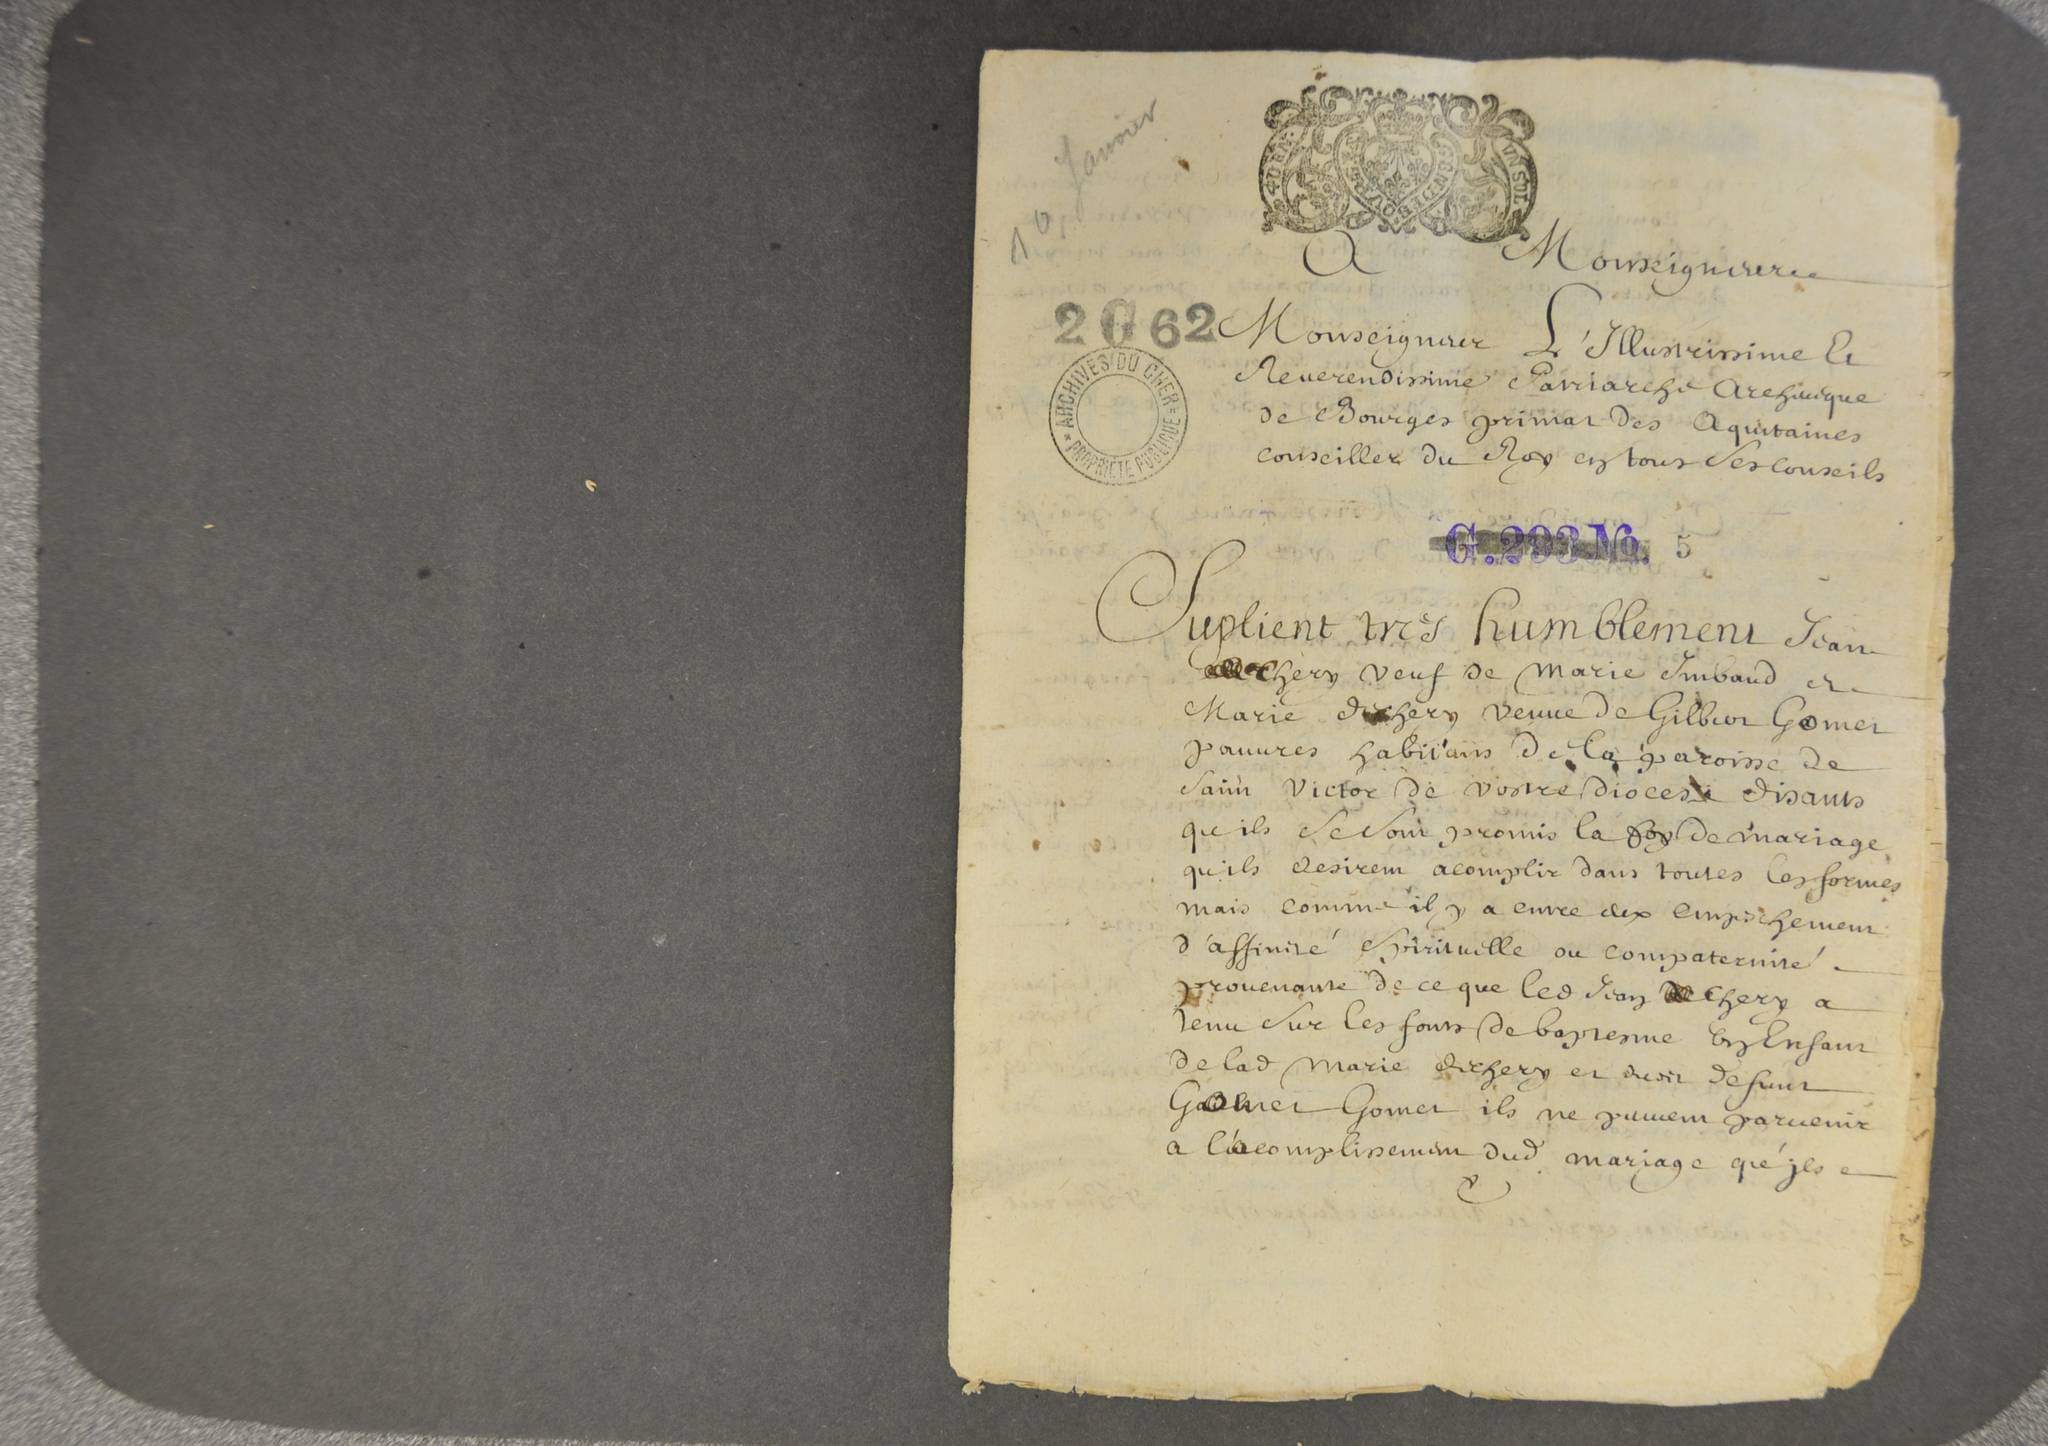 10 Janvier
GEN DE BOVRGES
UN SOL
A Monseigneur
2 G 62
Monseigneur L'Illustrissime Et
ARCHIVES DU CHER
PROPRIETE PUBLIQUE
Reuerendissime Patriarche Archeuêque
de Bourges primat des Aquitaines
conseiller du Roy en tous ses conseils
G. 293 No. 5
Suplient trés humblement Jean
chery veuf de Marie Imbaud et
Marie dechery veuue de Gilbert Gomet
pauures habitans de la paroisse de
saint Victor de vostre diocese disants
qu'ils se sont promis la foy de mariage
qu'ils desirent acomplir dans toutes les formes
mais comme il y a entre eux empéchement
d'affinité spirituelle ou compaternité
prouenante de ce que led Jean chery a
tenu sur les fonts de baptesme un Enfant
de lad Marie dechery et dudit defunt
Gomet ils ne peuuent paruenir
a l'acomplissement dud. mariage qu'jls